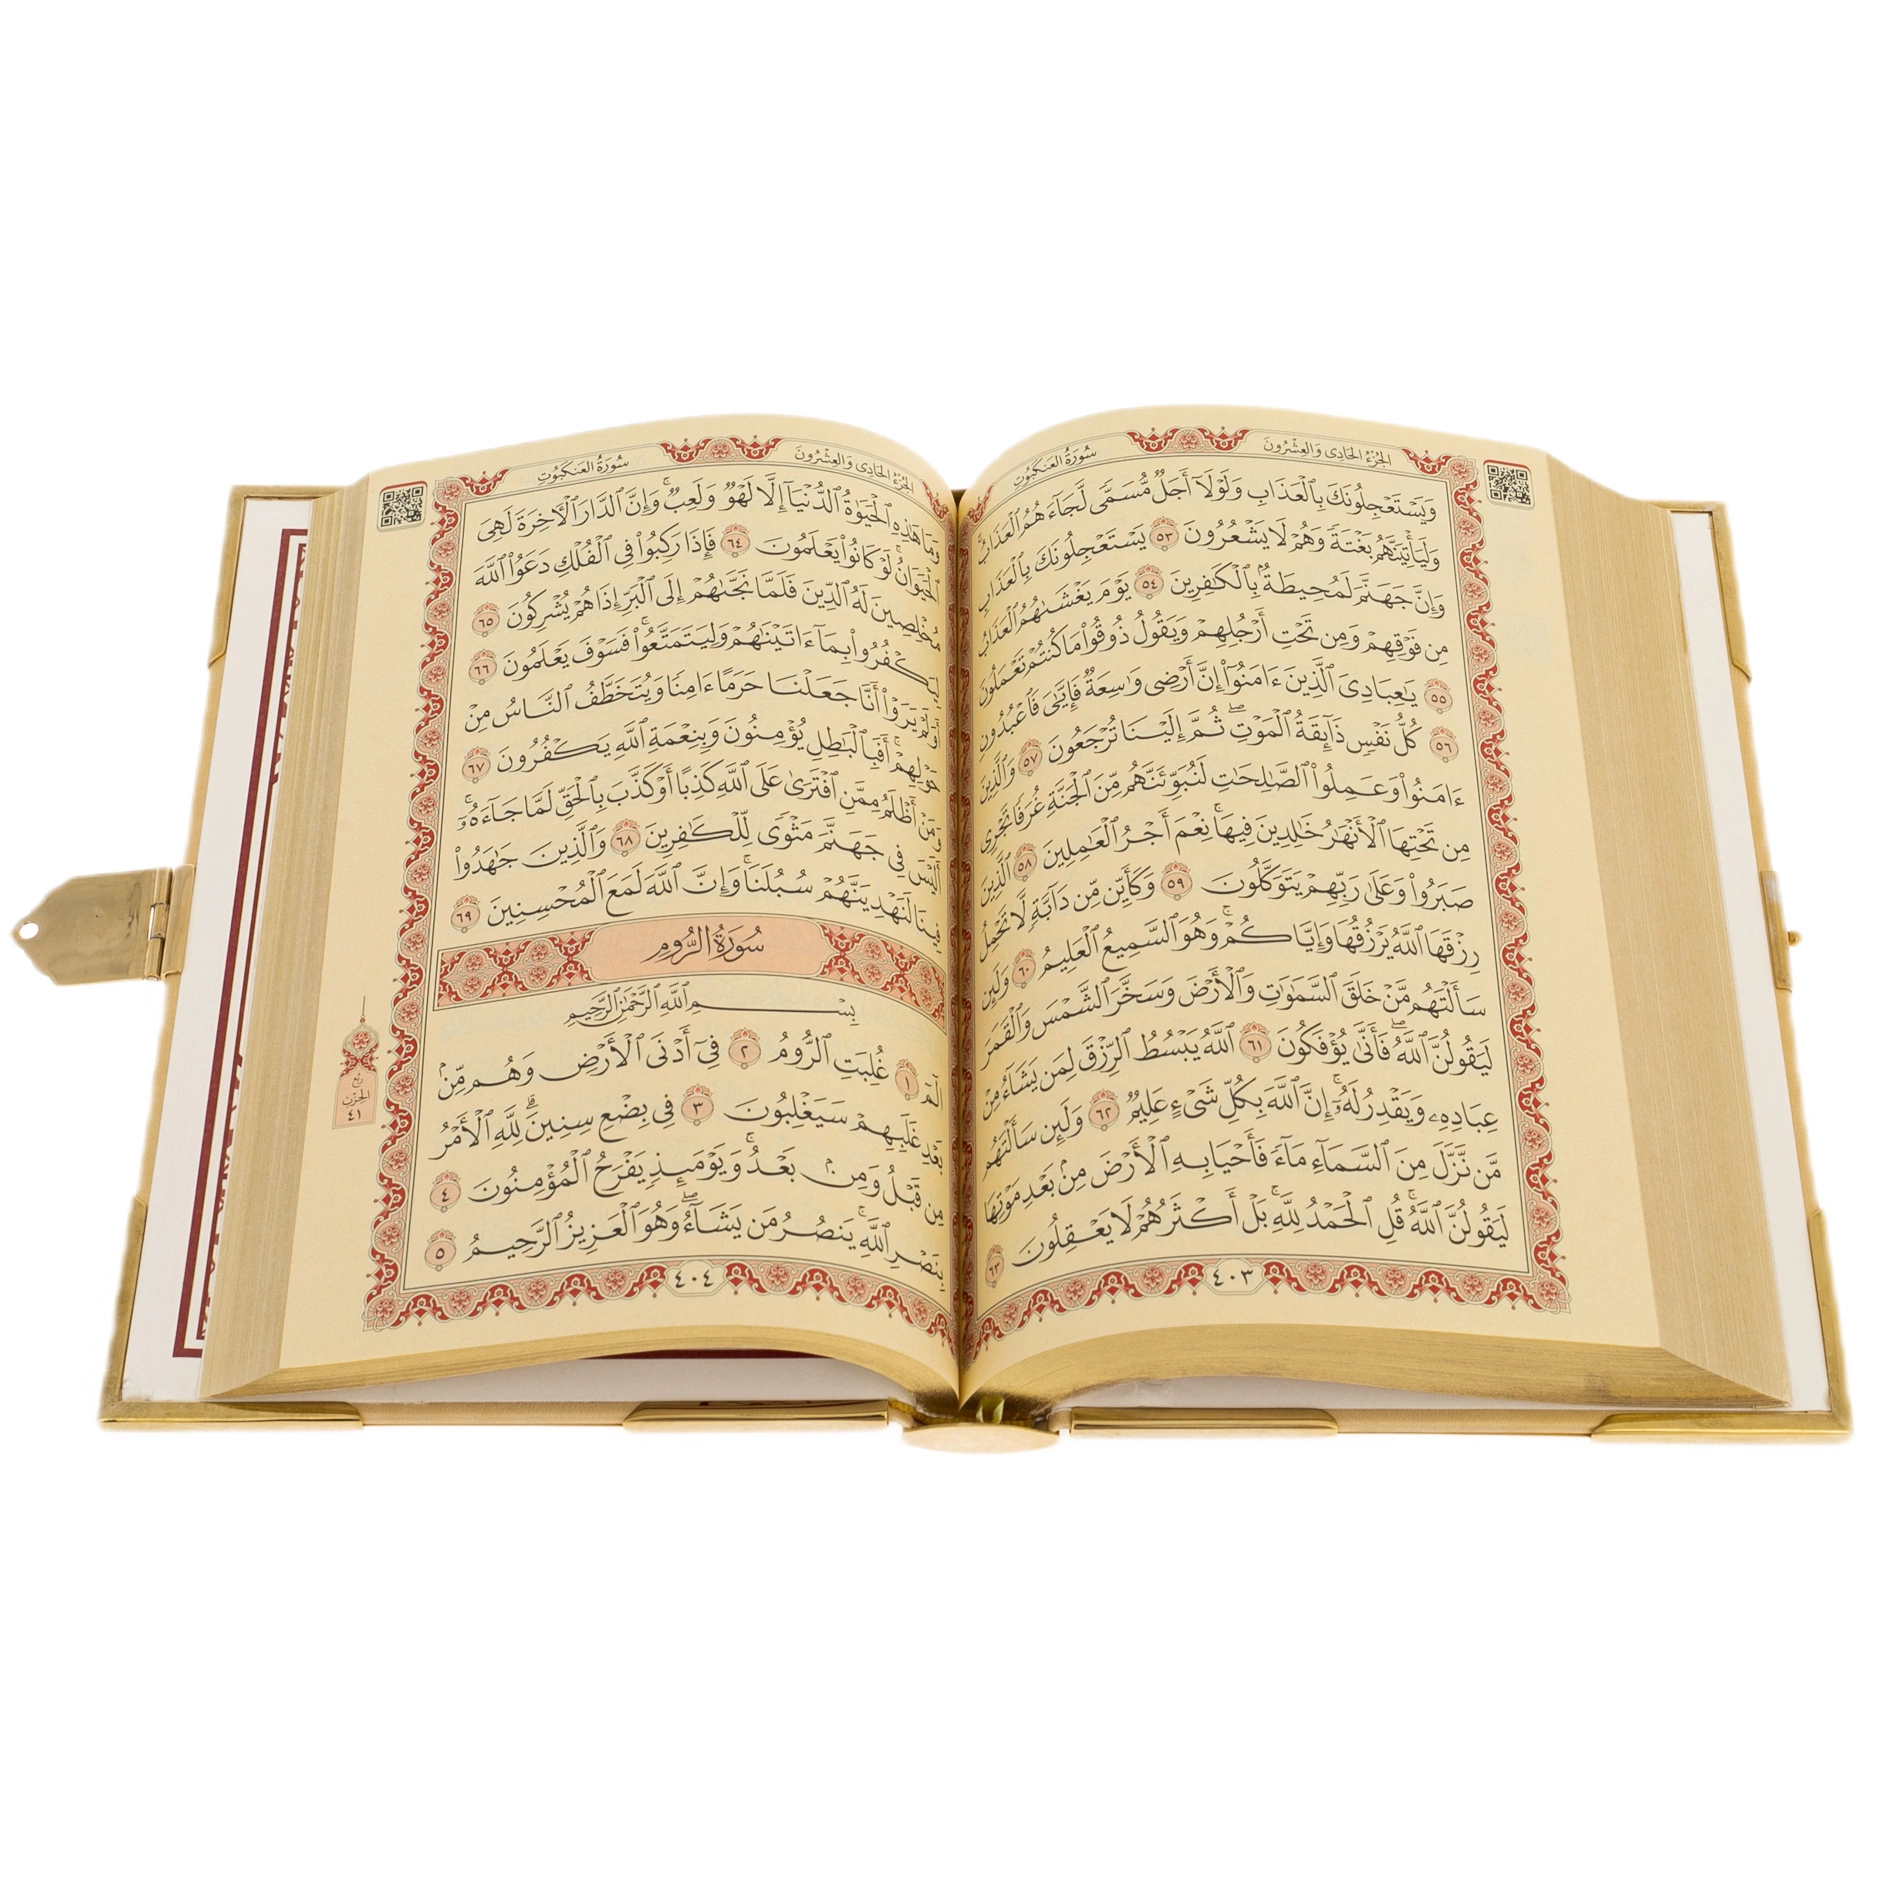 الجزء الحادي والعشرون
سورة العنكبوت
وَيَسْتَعْجِلُونَكَ بِالْعَذَابِ وَلَوْلَآ أَجَلٌ مُّسَمًّى لَّجَآءَهُمُ الْعَذَابُ
وَلَيَأْتِيَنَّهُم بَغْتَةً وَهُمْ لَا يَشْعُرُونَ ٥٣ يَسْتَعْجِلُونَكَ بِالْعَذَابِ
وَإِنَّ جَهَنَّمَ لَمُحِيطَةٌۢ بِالْكَٰفِرِينَ ٥٤ يَوْمَ يَغْشَىٰهُمُ الْعَذَابُ
مِن فَوْقِهِمْ وَمِن تَحْتِ أَرْجُلِهِمْ وَيَقُولُ ذُوقُوا۟ مَا كُنتُمْ تَعْمَلُونَ
٥٥ يَٰعِبَادِىَ ٱلَّذِينَ ءَامَنُوٓا۟ إِنَّ أَرْضِى وَٰسِعَةٌ فَإِيَّٰىَ فَٱعْبُدُونِ
٥٦ كُلُّ نَفْسٍ ذَآئِقَةُ ٱلْمَوْتِ ۖ ثُمَّ إِلَيْنَا تُرْجَعُونَ ٥٧ وَٱلَّذِينَ
ءَامَنُوا۟ وَعَمِلُوا۟ ٱلصَّٰلِحَٰتِ لَنُبَوِّئَنَّهُم مِّنَ ٱلْجَنَّةِ غُرَفًا تَجْرِى
مِن تَحْتِهَا ٱلْأَنْهَٰرُ خَٰلِدِينَ فِيهَا ۚ نِعْمَ أَجْرُ ٱلْعَٰمِلِينَ ٥٨ ٱلَّذِينَ
صَبَرُوا۟ وَعَلَىٰ رَبِّهِمْ يَتَوَكَّلُونَ ٥٩ وَكَأَيِّن مِّن دَآبَّةٍ لَّا تَحْمِلُ
رِزْقَهَا ٱللَّهُ يَرْزُقُهَا وَإِيَّاكُمْ ۚ وَهُوَ ٱلسَّمِيعُ ٱلْعَلِيمُ ٦٠ وَلَئِن
سَأَلْتَهُم مَّنْ خَلَقَ ٱلسَّمَٰوَٰتِ وَٱلْأَرْضَ وَسَخَّرَ ٱلشَّمْسَ وَٱلْقَمَرَ
لَيَقُولُنَّ ٱللَّهُ ۖ فَأَنَّىٰ يُؤْفَكُونَ ٦١ ٱللَّهُ يَبْسُطُ ٱلرِّزْقَ لِمَن يَشَآءُ مِنْ
عِبَادِهِۦ وَيَقْدِرُ لَهُۥٓ ۚ إِنَّ ٱللَّهَ بِكُلِّ شَىْءٍ عَلِيمٌ ٦٢ وَلَئِن سَأَلْتَهُم
مَّن نَّزَّلَ مِنَ ٱلسَّمَآءِ مَآءً فَأَحْيَا بِهِ ٱلْأَرْضَ مِنۢ بَعْدِ مَوْتِهَا
لَيَقُولُنَّ ٱللَّهُ ۚ قُلِ ٱلْحَمْدُ لِلَّهِ ۚ بَلْ أَكْثَرُهُمْ لَا يَعْقِلُونَ ٦٣
٤٠٣
الجزء الحادي والعشرون
سورة العنكبوت
وَمَا هَٰذِهِ ٱلْحَيَوٰةُ ٱلدُّنْيَآ إِلَّا لَهْوٌ وَلَعِبٌ ۚ وَإِنَّ ٱلدَّارَ ٱلْءَاخِرَةَ لَهِىَ
ٱلْحَيَوَانُ ۚ لَوْ كَانُوا۟ يَعْلَمُونَ ٦٤ فَإِذَا رَكِبُوا۟ فِى ٱلْفُلْكِ دَعَوُا۟ ٱللَّهَ
مُخْلِصِينَ لَهُ ٱلدِّينَ فَلَمَّا نَجَّىٰهُمْ إِلَى ٱلْبَرِّ إِذَا هُمْ يُشْرِكُونَ ٦٥
بِمَآ ءَاتَيْنَٰهُمْ وَلِيَتَمَتَّعُوا۟ ۖ فَسَوْفَ يَعْلَمُونَ ٦٦
يَرَوْا۟ أَنَّا جَعَلْنَا حَرَمًا ءَامِنًا وَيُتَخَطَّفُ ٱلنَّاسُ مِنْ
حَوْلِهِمْ ۚ أَفَبِٱلْبَٰطِلِ يُؤْمِنُونَ وَبِنِعْمَةِ ٱللَّهِ يَكْفُرُونَ ٦٧
أَظْلَمُ مِمَّنِ ٱفْتَرَىٰ عَلَى ٱللَّهِ كَذِبًا أَوْ كَذَّبَ بِٱلْحَقِّ لَمَّا جَآءَهُۥٓ ۚ
فِى جَهَنَّمَ مَثْوًى لِّلْكَٰفِرِينَ ٦٨ وَٱلَّذِينَ جَٰهَدُوا۟
لَنَهْدِيَنَّهُمْ سُبُلَنَا ۚ وَإِنَّ ٱللَّهَ لَمَعَ ٱلْمُحْسِنِينَ ٦٩
سورة الروم
بِسْمِ ٱللَّهِ ٱلرَّحْمَٰنِ ٱلرَّحِيمِ
الٓمٓ ١ غُلِبَتِ ٱلرُّومُ ٢ فِىٓ أَدْنَى ٱلْأَرْضِ وَهُم مِّنۢ
بَعْدِ غَلَبِهِمْ سَيَغْلِبُونَ ٣ فِى بِضْعِ سِنِينَ ۗ لِلَّهِ ٱلْأَمْرُ
مِن قَبْلُ وَمِنۢ بَعْدُ ۚ وَيَوْمَئِذٍ يَفْرَحُ ٱلْمُؤْمِنُونَ ٤
بِنَصْرِ ٱللَّهِ ۚ يَنصُرُ مَن يَشَآءُ ۖ وَهُوَ ٱلْعَزِيزُ ٱلرَّحِيمُ ٥
ربع
الحزب
٤١
٤٠٤